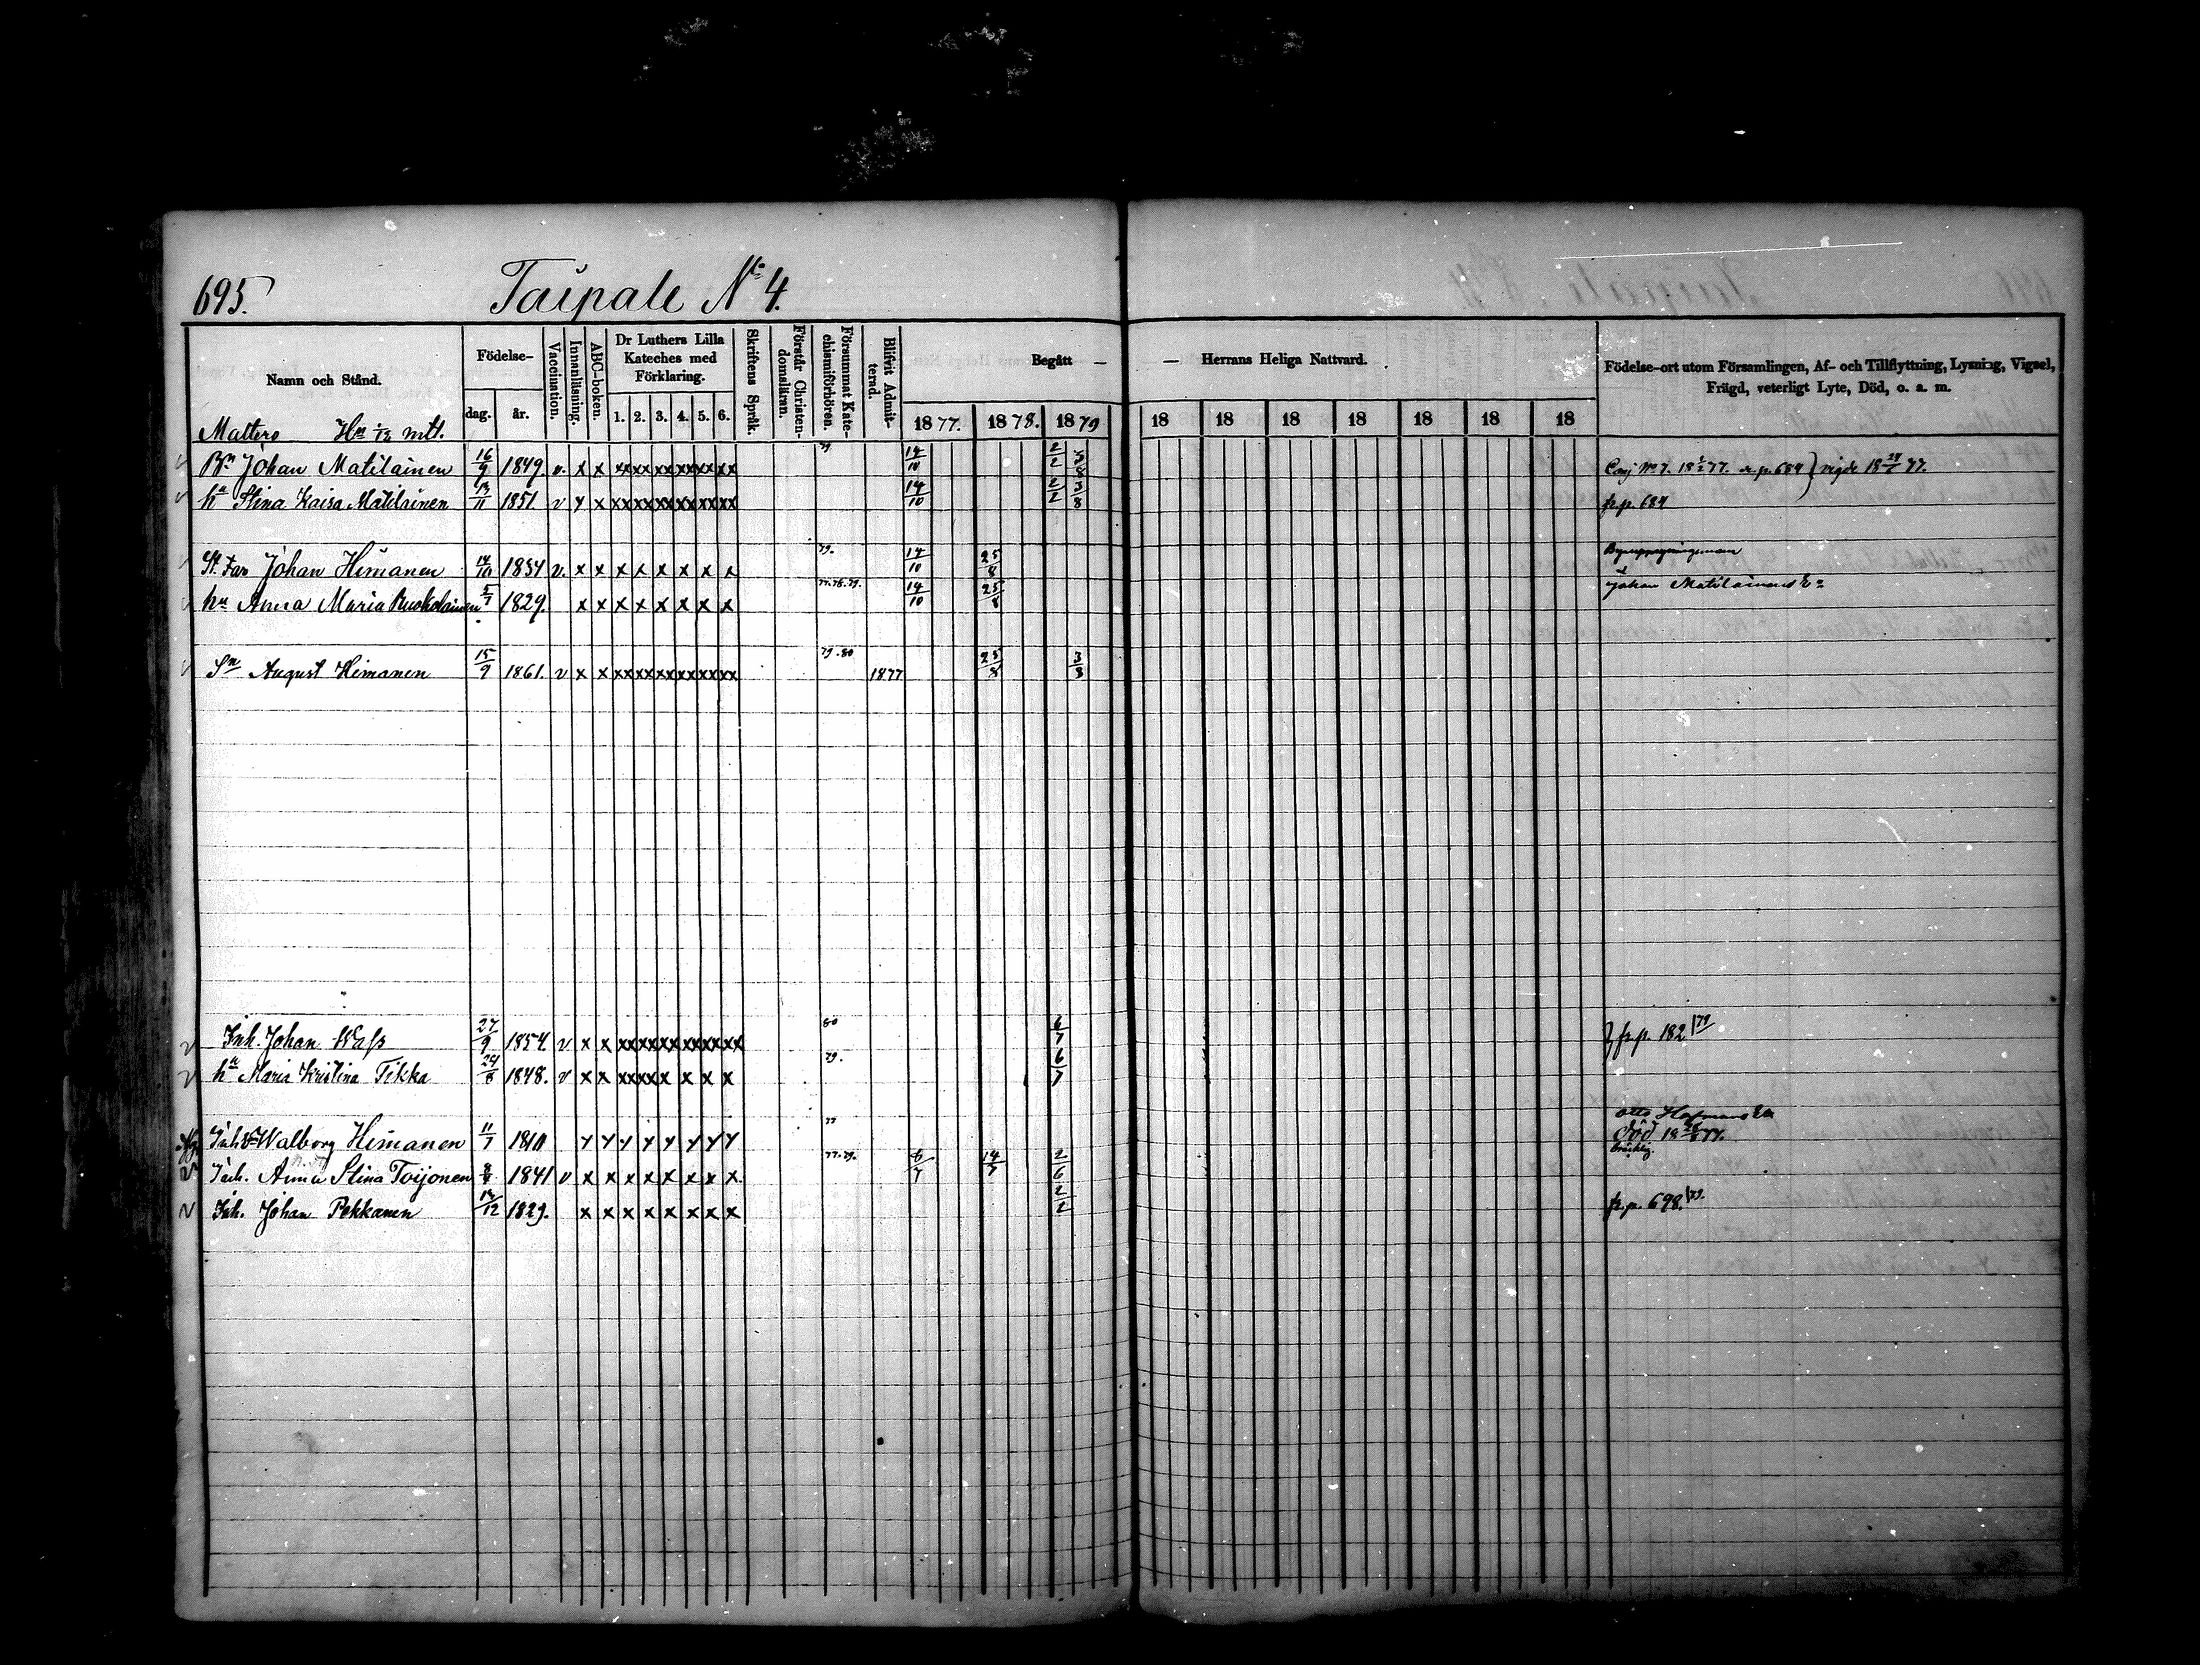 695. Taipale No 4.
Namn och Stånd. Födelse- dag. år. Vaccination. Innanläsning. ABC-boken. Dr Luthers Lilla Kateches med Förklaring. 1. 2. 3. 4. 5. 6. Skriftens Språk. Förstår Christendomsläran. Försummat Katechismiförhören. Blifvit Admitterad. Begått — — Herrans Heliga Nattvard. Födelse-ort utom Församlingen, Af- och Tillflyttning, Lysning, Vigsel, Frägd, veterligt Lyte, Död, o. a. m.
1877. 1878. 1879 18 18 18 18 18 18 18
Mattero Hn mtl.
Bn Johan Matilainen 16/9 1849. v. x x xx xx xx xx xx xx 79 14/10 2/2 3/8 p. 684 } vigde 77.
hu Stina Kaisa Matilainen 13/11 1851. v x x xx xx xx xx xx xx 14/10 2/2 3/8 fr. p. 684
St. Far Johan Himanen 14/10 1834 v. x x x x x x x x 79. 14/10 25/8
hu Anna Maria Ruokolainen 5/7 1829. x x x x x x x x 77.78.79. 14/10 25/8 Johan Matilainens
Sn August Himanen 15/9 1861. v x x xx xx xx xx xx xx 79.80 1877 25/8 3/8
Inh. Johan Wass 27/9 1854 v x x xx xx xx xx xx xx 80 6/7 } fr. p. 182 /79
hu Maria Kristina Tikka 24/8 1848. v x x xx xx x x x x 79. 6/7
Inh. Walborg Himanen 11/7 1810 x x x x x x x x 77 Otto
död 77.
bräcklig.
Inh. Anna Stina Toijonen 1841 v x x x x x x x x 77.79. 6/7 14/7 2/6
Inh. Johan Pekkanen 1829. x x x x x x x x 2/2 fr. p. 698. /79.